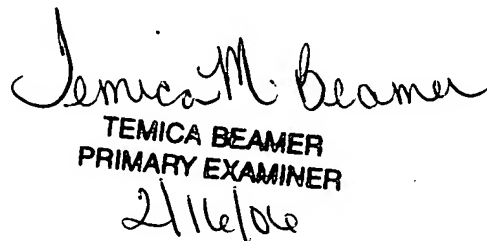 Temica M. Beamer
TEMICA BEAMER
PRIMARY EXAMINER
2/16/06